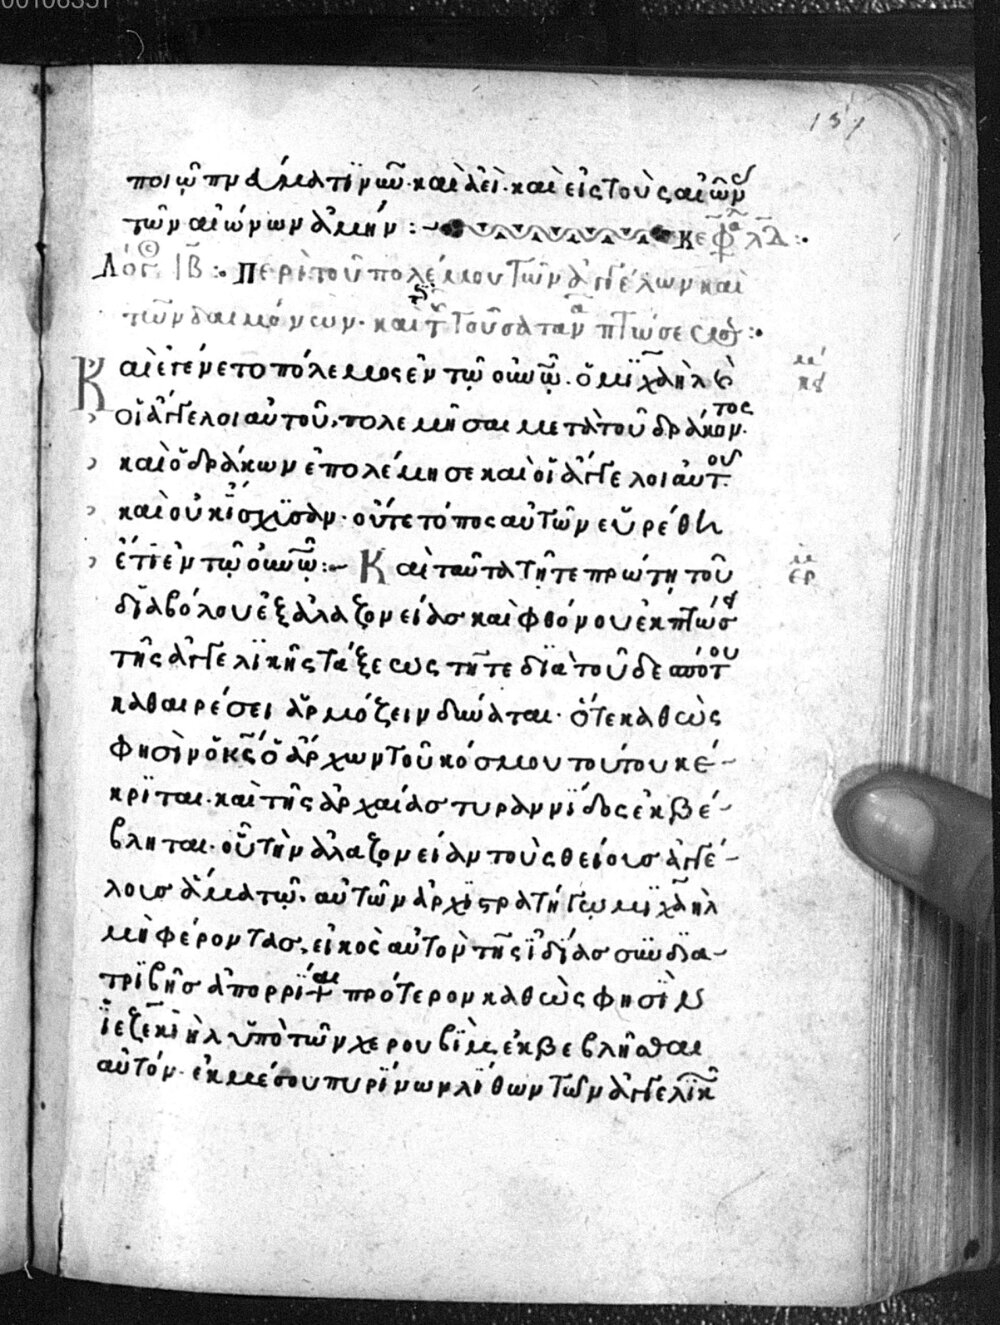 00106351
137
ποιῷ πν̅α̅ματι νῦν· καὶ ἀεὶ· καὶ εἰς τοὺς αἰῶν
τῶν αἰώνων ἀμήν :~ κεφ λδ :·
Λόγ ΙΒ :· Περὶ τοῦ πολέμου τῶν ἀγγέλων καὶ
τῶν δαιμόνων· καὶ τ τοῦ σαταν πτώσεως :·
Καὶ ἐγένετο πόλεμος ἐν τῷ οὐνῷ. ὁ μϊχαὴλ καὶ
οἱ ἄγγελοι αὐτοῦ, πολεμῆσαι μετὰ τοῦ δράκοντος.
καὶ ὁ δράκων ἐπολέμησε καὶ οἱ ἄγγελοι αὐτου.
καὶ οὐκ ἴσχϋσαν· οὔτε τόπος αὐτῶν εὑρέθη
ἔτι ἐν τῷ οὐνῷ :~ Καὶ ταῦτα τῇ τε πρώτῃ τοῦ
διαβόλου ἐξ ἀλαζονείας καὶ φθόνου ἐκπτώσ
τῆς ἀγγελϊκῆς τάξεως τῇ τε διὰ τοῦ δεσπότου
καθαιρέσει ἁρμόζειν δύναται· ὅτε καθὼς
φησὶν ὁ κς̅ ὁ ἄρχων τοῦ κόσμου τούτου κέ-
κρϊται· καὶ τῆς ἀρχαίας τυραννίδος ἐκβέ-
βληται· οὗ τὴν ἀλαζονείαν τοὺς θείους ἀγγέ-
λους ἅμα τῷ αὐτῶν ἀρχϊστρατήγῳ μϊχαὴλ
μὴ φέροντας, εἰκὸς αὐτὸν τῆς ἰδίας συνδια-
τρϊβῆς ἀπορρίψαι πρότερον καθὼς φησὶν
ἰεζεκιὴλ ὑπὸ τῶν χερουβϊμ, ἐκβεβλῆσθαι
αὐτόν· ἐκ μέσου πυρίνων λίθων τῶν ἀγγελϊκ